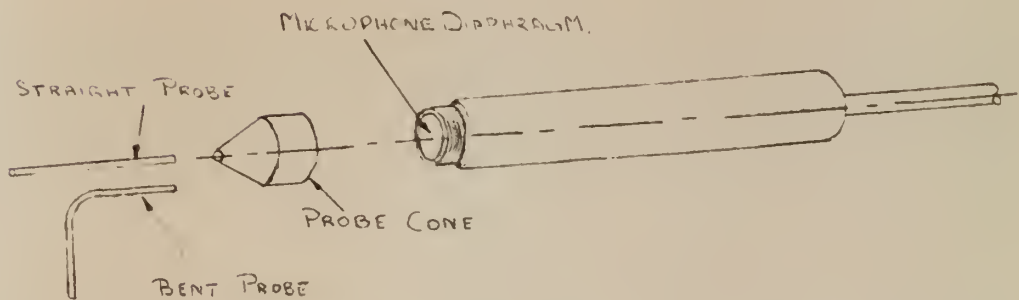 MICROPHONE DIAPHRAGM.
STRAIGHT PROBE
PROBE CONE
BENT PROBE